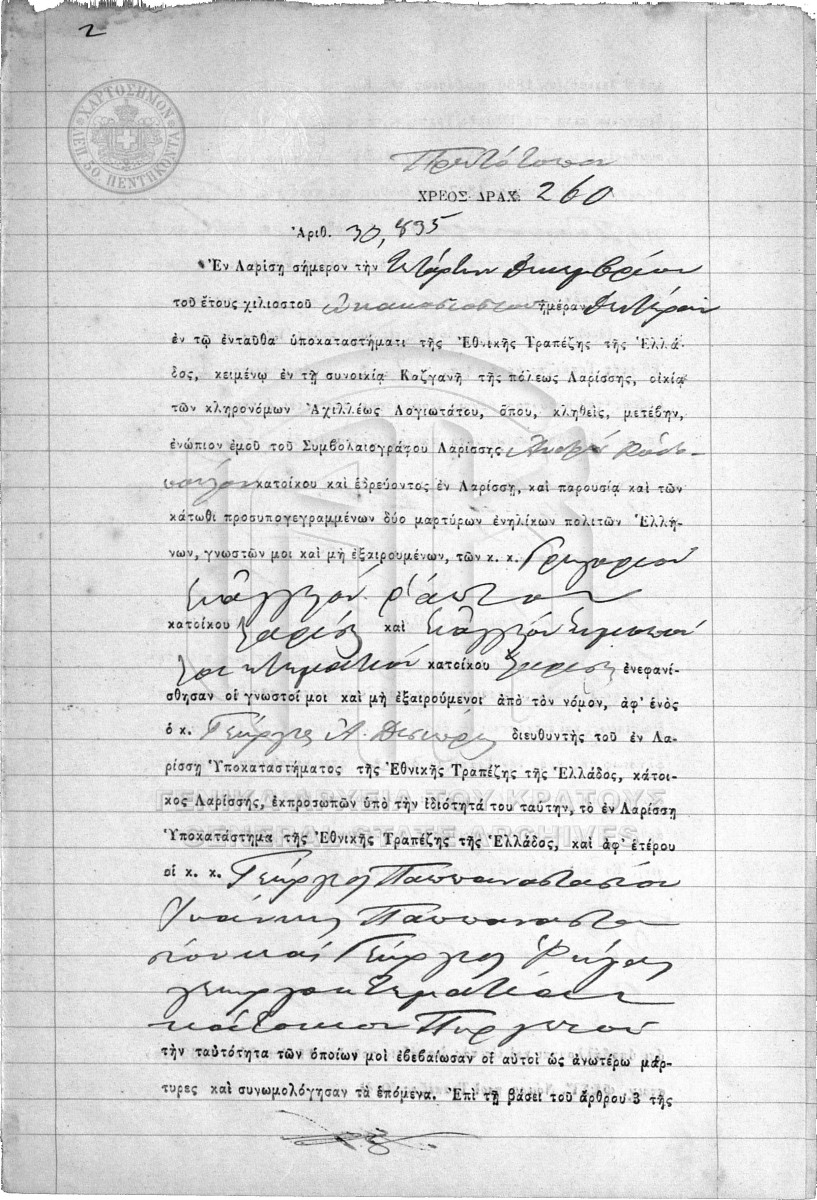 2
ΧΑΡΤΟΣΗΜΟΝ ΛΕΠ. 50. ΠΕΝΤΗΚΟΝΤΑ
Πρωτότυπον
ΧΡΕΟΣ ΔΡΑΧ. 260
Ἀριθ. 30,835
Ἐν Λαρίσῃ σήμερον τὴν τετάρτην Δεκεμβρίου
τοῦ ἔτους χιλιοστοῦ ἐννακοσιοστοῦ ἡμέραν Δευτέραν
ἐν τῷ ἐνταῦθα ὑποκαταστήματι τῆς Ἐθνικῆς Τραπέζης τῆς Ἑλλά-
δος, κειμένῳ ἐν τῇ συνοικίᾳ Καζγανῆ τῆς πόλεως Λαρίσσης, οἰκίᾳ
τῶν κληρονόμων Ἀχιλλέως Λογιωτάτου, ὅπου, κληθεὶς, μετέβην,
ἐνώπιον ἐμοῦ τοῦ Συμβολαιογράφου Λαρίσσης
κατοίκου καὶ ἑδρεύοντος ἐν Λαρίσσῃ, καὶ παρουσίᾳ καὶ τῶν
κάτωθι προσυπογεγραμμένων δύο μαρτύρων ἐνηλίκων πολιτῶν Ἑλλή-
νων, γνωστῶν μοι καὶ μὴ ἐξαιρουμένων, τῶν κ. κ. Γρηγορίου
ῥάπτου
κατοίκου Λαρίσης καὶ
κτηματίου κατοίκου Λαρίσης ἐνεφανί-
σθησαν οἱ γνωστοί μοι καὶ μὴ ἐξαιρούμενοι ἀπὸ τὸν νόμον, ἀφ' ἑνὸς
ὁ κ. Γεώργιος Α. διευθυντὴς τοῦ ἐν Λα-
ρίσσῃ Ὑποκαταστήματος τῆς Ἐθνικῆς Τραπέζης τῆς Ἑλλάδος, κάτοι-
κος Λαρίσσης, ἐκπροσωπῶν ὑπὸ τὴν ἰδιότητά του ταύτην, τὸ ἐν Λαρίσσῃ
ΓΕΝΙΚΑ ΑΡΧΕΙΑ ΤΟΥ ΚΡΑΤΟΥΣ
GENERAL STATE ARCHIVES
Ὑποκατάστημα τῆς Ἐθνικῆς Τραπέζης τῆς Ἑλλάδος, καὶ ἀφ' ἑτέρου
οἱ κ. κ. Γεώργιος Παππαναστασίου
Ἰωάννης Παππαναστα
σίου καὶ Γεώργιος Ῥήγας
γεωργοκτηματίαι
κάτοικοι Πυργετοῦ
τὴν ταὐτότητα τῶν ὁποίων μοὶ ἐβεβαίωσαν οἱ αὐτοὶ ὡς ἀνωτέρω μάρ-
τυρες καὶ συνωμολόγησαν τὰ ἑπόμενα. Ἐπὶ τῇ βάσει τοῦ ἄρθρου 3 τῆς